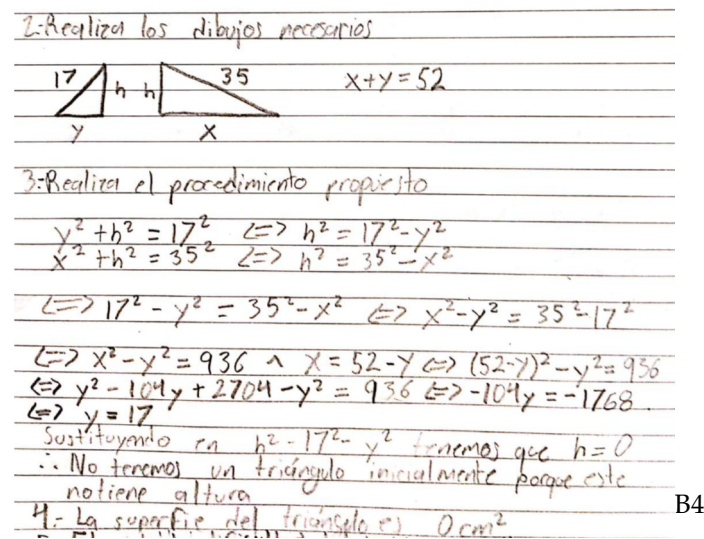 2.-Realiza los dibujos necesarios
17 h h 35 x+y=52
y x
3.-Realiza el procedimiento propuesto
y² + h² = 17² <=> h² = 17²-y²
x² + h² = 35² <=> h² = 35²-x²
<=> 17² - y² = 35²-x² <=> x²-y² = 35²-17²
<=> x²-y² = 936 ∧ x = 52-y <=> (52-y)²-y²=936
<=> y²-104y+2704-y² = 936 <=> -104y = -1768.
<=> y = 17
Sustituyendo en h² - 17² - y² tenemos que h = 0
∴ No tenemos un triángulo inicialmente porque este
notiene altura
B4
4.- La superfie del triángulo es 0 cm²